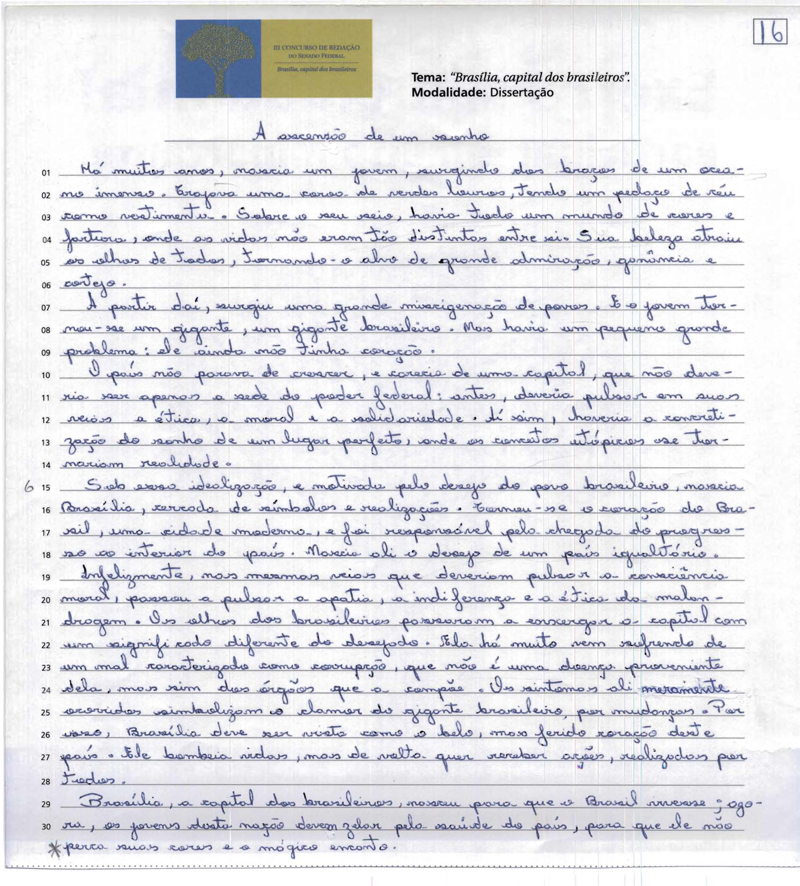 16
III CONCURSO DE REDAÇÃO
DO SENADO FEDERAL
Brasília, capital dos brasileiros
Tema: "Brasília, capital dos brasileiros".
Modalidade: Dissertação
A ascensão de um sonho
01 Há muitos anos, nascia um jovem, surgindo dos braços de um ocea-
02 no imenso. Trajava uma coroa de verdes louros, tendo um pedaço de céu
03 como vestimenta. Sobre o seu seio, havia todo um mundo de cores e
04 fartura, onde as vidas não eram tão distintas entre si. Sua beleza atraiu
05 os olhos de todos, tornando-o alvo de grande admiração, ganância e
06 cortejo.
07 A partir daí, surgiu uma grande miscigenação de povos. E o jovem tor-
08 nou-se um gigante, um gigante brasileiro. Mas havia um pequeno grande
09 problema: ele ainda não tinha coração.
10 O país não parava de crescer, e carecia de uma capital, que não deve-
11 ria ser apenas a sede do poder federal: antes, deveria pulsar em suas
12 veias a ética, a moral e a solidariedade. Aí sim, haveria a concreti-
13 zação do sonho de um lugar perfeito, onde os conceitos utópicos se tor-
14 nariam realidade.
6 15 Sob essa idealização, e motivada pelo desejo do povo brasileiro, nascia
16 Brasília, cercada de símbolos e realizações. Tornou-se o coração do Bra-
17 sil, uma cidade moderna, e foi responsável pela chegada do progres-
18 so ao interior do país. Nascia ali o desejo de um país igualitário.
19 Infelizmente, nas mesmas veias que deveriam pulsar a consciência
20 moral, passou a pulsar a apatia, a indiferença e a ética da malan-
21 drogem. Os olhos dos brasileiros passaram a enxergar a capital com
22 um significado diferente do desejado. Ela há muito vem sofrendo de
23 um mal caracterizado como corrupção, que não é uma doença proveniente
24 dela, mas sim dos órgãos que a compõe. Os sintomas ali meramente
25 ocorridos simbolizam o clamor do gigante brasileiro, por mudanças. Por
26 isso, Brasília deve ser vista como o belo, mas ferido coração deste
27 país. Ele bombeia vidas, mas de volta quer receber ações, realizadas por
28 todos.
29 Brasília, a capital dos brasileiros, nasceu para que o Brasil vivesse; ago-
30 ra, os jovens desta nação devem zelar pela saúde do país, para que ele não
* perca suas cores e o mágico encanto.